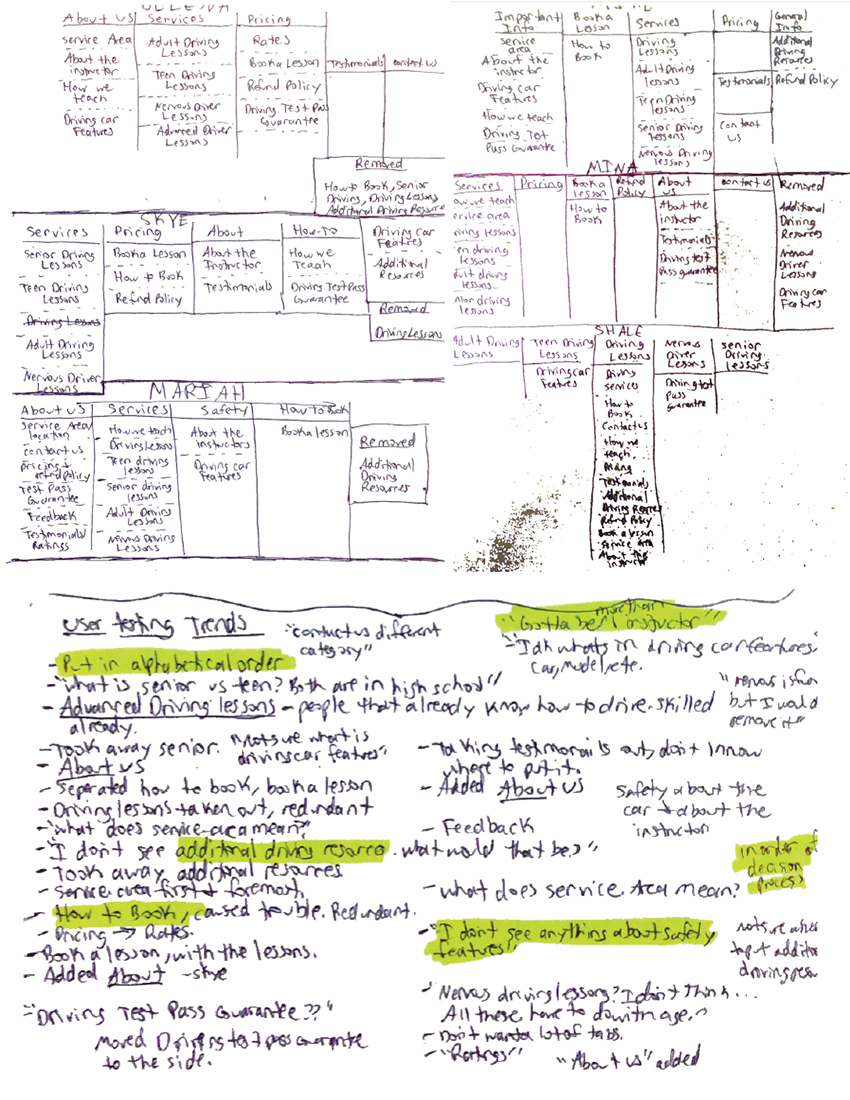 About us Services Pricing
Service Area
About the instructor
How we teach
Driving car Features
Adult Driving Lessons
Teen Driving Lessons
Nervous Driver Lessons
Advanced Driver Lessons
Rates
Book a Lesson
Refund Policy
Driving Test Pass Guarantee
Testimonials
contact us
Removed
How to Book, Senior Driving, Driving Lessons
Additional Driving Resource
Important Info
Book a Lesson
Services
Pricing
General Info
Service area
About the instructor
Driving car Features
How we teach
Driving Test Pass Guarantee
How to Book
Driving Lessons
Adult Driving lessons
Teen Driving Lessons
Senior Driving Lessons
Nervous Driving Lessons
Testimonials
Contact us
Additional Driving Resources
Refund Policy
SKYE
Services Pricing About How-To
Senior Driving Lessons
Teen Driving Lessons
Driving Lessons
Adult Driving Lessons
Nervous Driver Lessons
Book a Lesson
How to Book
Refund Policy
About the Instructor
Testimonials
How we Teach
Driving Test Pass Guarantee
Driving car Features
Additional Resources
Removed
Driving Lessons
MINA
Services
Pricing
Book a lesson
Refund Policy
About us
contact us
Removed
ow we teach
ervice area
iving lessons
en driving lessons
dult driving lessons
nior driving lessons
How to Book
About the instructor
Testimonials
Driving test Pass guarantee
Additional Driving Resources
Nervous Driver Lessons
Driving car Features
MARIAH
About us Services Safety How to Book
Service Area location
contact us
pricing + refund policy
Test Pass Guarantee
Feedback
Testimonials/ Ratings
How we teach
Driving Lessons
Teen driving lessons
Senior driving lessons
Adult Driving Lessons
Nervous Driving Lessons
About the instructors
Driving car Features
Book a lesson
Removed
Additional Driving Resources
SHALE
Adult Driving Lessons
Teen Driving Lessons
Driving Lessons
Nervous Driver Lessons
Senior Driving Lessons
Driving car Features
Driving Services
How to Book
Contact us
How we teach
Testimonials
Additional Driving Resources
Refund Policy
Book a lesson
Service Area
About the instructor
Driving test pass guarantee
User testing Trends
"contact us different category"
- Put in alphabetical order
- "what is senior vs teen? Both are in high school"
- Advanced Driving lessons - people that already know how to drive. skilled already.
- Took away senior. "not sure what is driving car features"
- About us
- Seperated how to book, book a lesson
- Driving lessons taken out, redundant
- "what does service area mean?"
- "I don't see additional driving resource. what would that be?"
- Took away additional resources
- Service area first & foremost
- How to Book, caused trouble. Redundant.
- Pricing → Rates.
- Book a lesson, with the lessons.
- Added About - skye
- "Driving Test Pass Guarantee??"
moved Driving test pass guarantee to the side.
"Gotta be more than 1 instructor"
- "Idk whats in driving car features. car, model, etc.
but I would remove it"
- Taking testimonials out, don't know where to put it.
- Added About us
Safety about the car & about the instructor
- Feedback
in order of decision process?
- what does service area mean?
- "I don't see anything about safety features"
not sure where to put additio driving resou
- "Nervous driving lessons? I don't think... All these have to do with age."
- Don't want a lot of tabs.
- "Ratings"
"About us" added